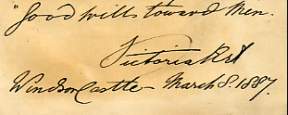 "good will toward Men.
Victoria R&I
Windsor Castle – March 8. 1887.